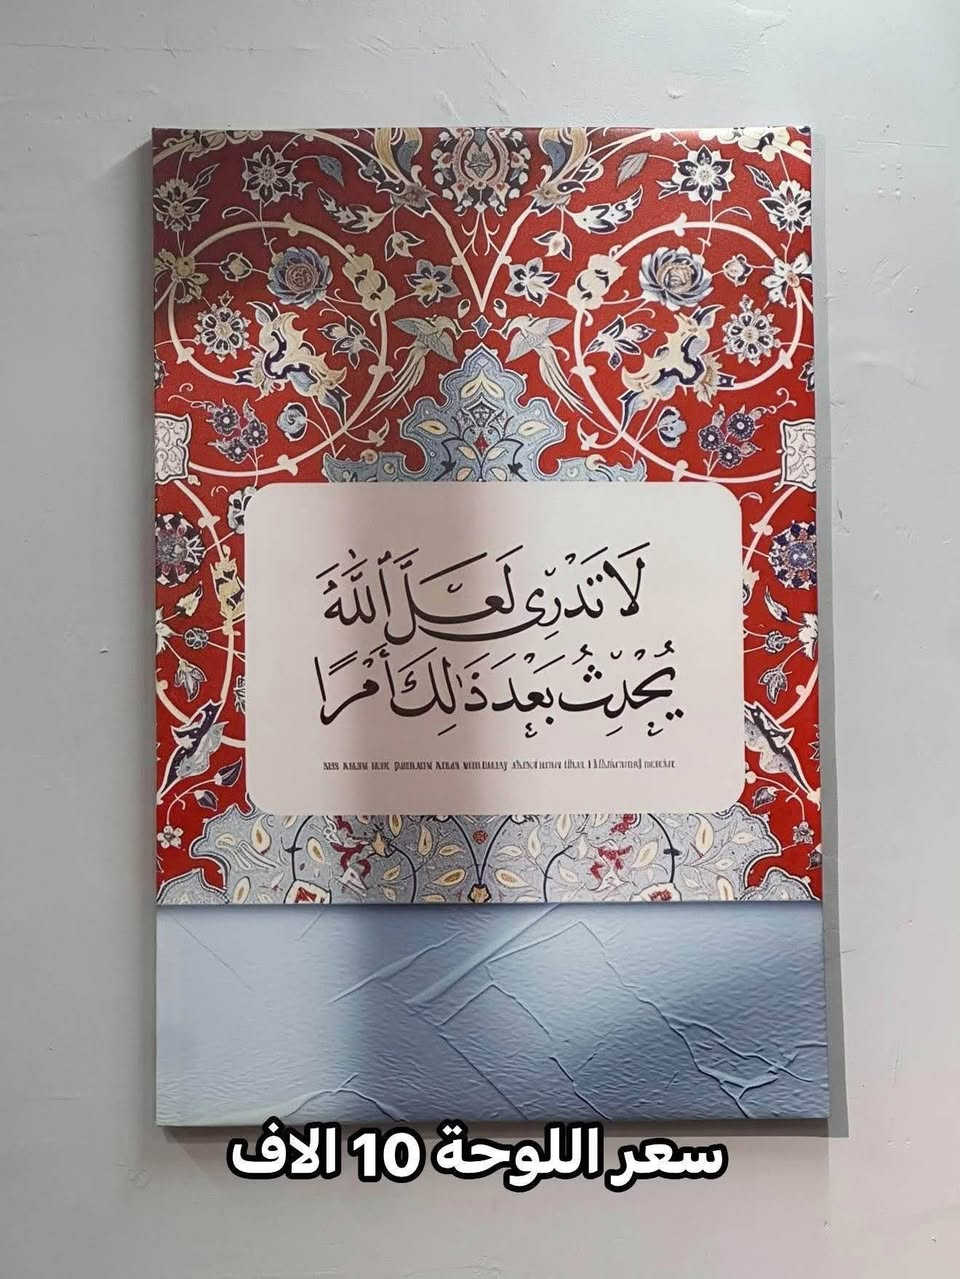 لَا تَدْرِى لَعَلَّ ٱللَّهَ
يُحْدِثُ بَعْدَ ذَٰلِكَ أَمْرًا
سعر اللوحة 10 الاف